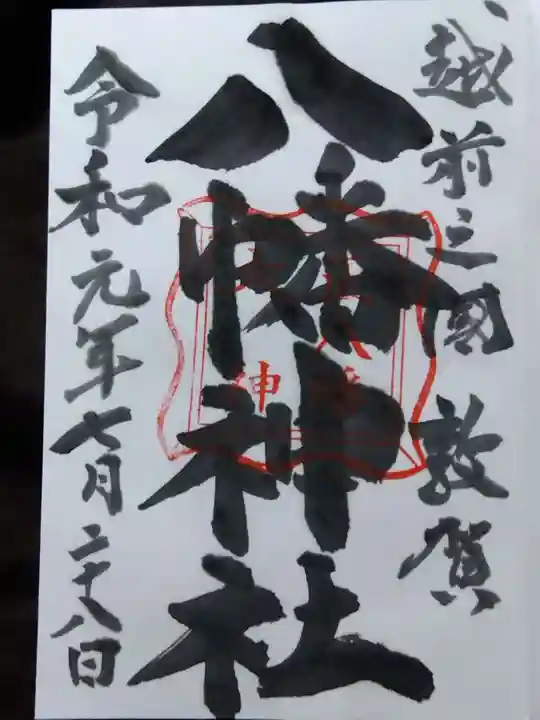 越前之國 敦賀
八幡神社
令和元年七月二十八日